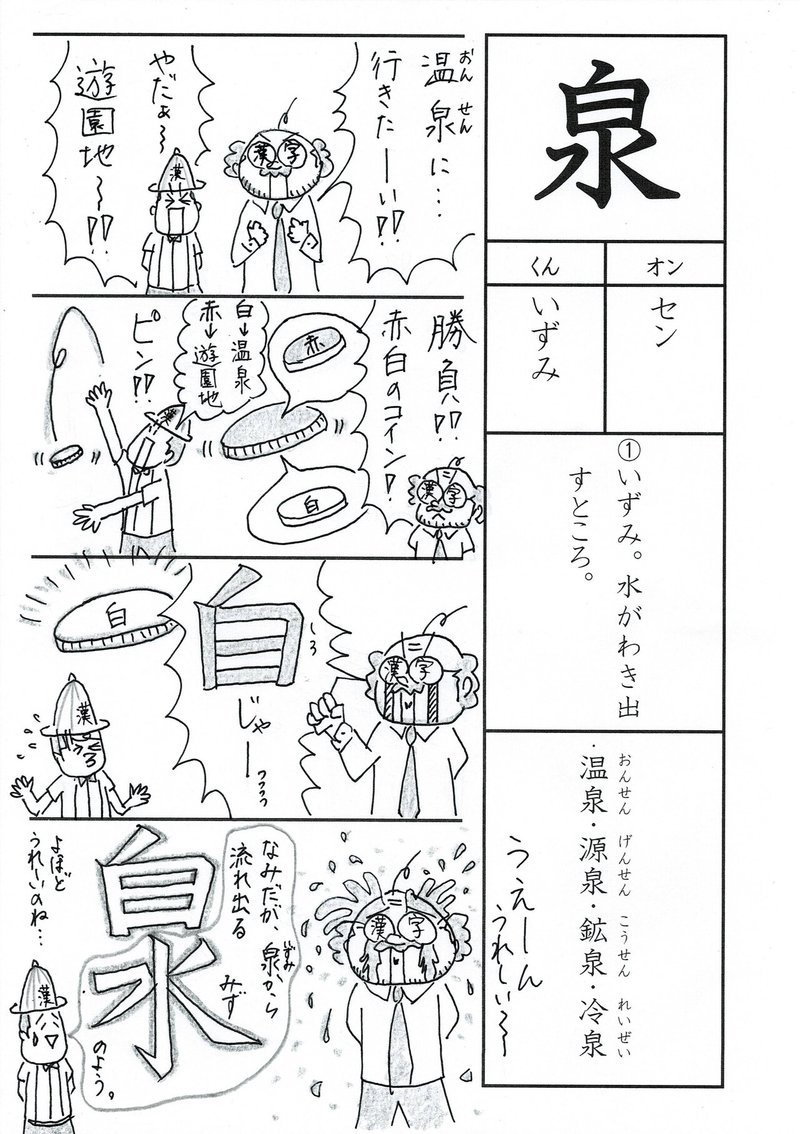 泉
オン
くん
セン
いずみ
①いずみ。水がわき出
すところ。
おんせん げんせん こうせん れいぜい
・温泉・源泉・鉱泉・冷泉
うえーん
うれしい〜
おん せん
温泉に…
行きたーい!!
漢字
やだぁ〜
遊園地〜!!
漢
勝負!!
赤白のコイン!
漢字
赤
白
白→温泉
赤→遊園地
ピン!!
漢
漢字
白
しろ
じゃーっっっっ
白
漢
漢字
なみだが、泉から
いずみ
流れ出る
みず
白水
のよう。
よほど
うれしいのね…
漢